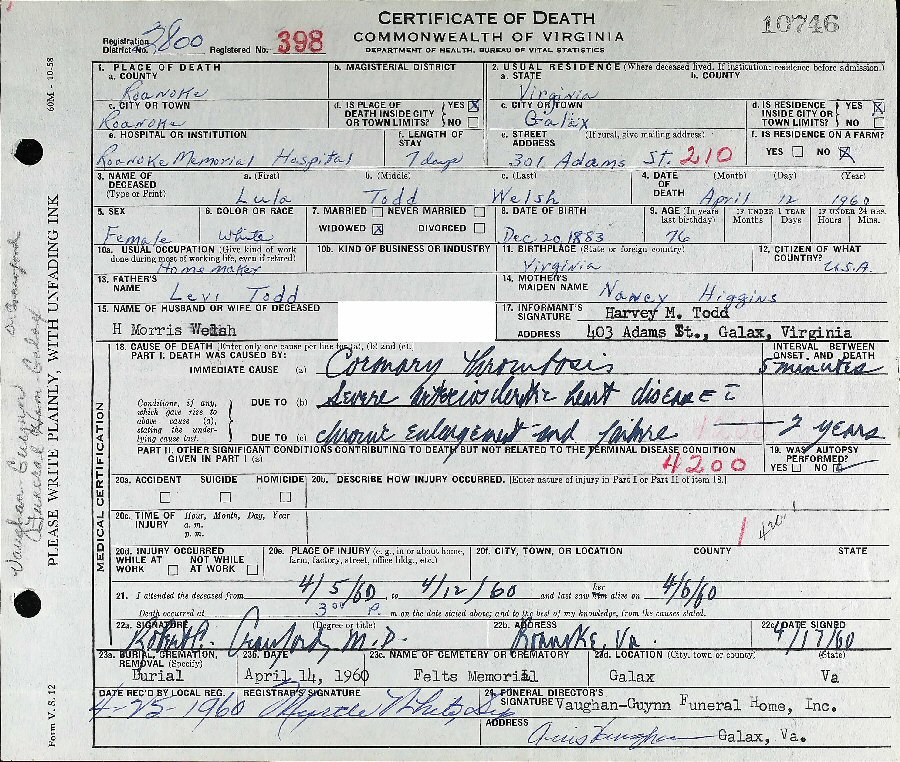 CERTIFICATE OF DEATH
COMMONWEALTH OF VIRGINIA
DEPARTMENT OF HEALTH, BUREAU OF VITAL STATISTICS
10746
Registration District No. 3800 Registered No. 398
1. PLACE OF DEATH
a. COUNTY
Roanoke
b. MAGISTERIAL DISTRICT
2. USUAL RESIDENCE (Where deceased lived. If institution: residence before admission.)
a. STATE
Virginia
b. COUNTY
c. CITY OR TOWN
Roanoke
d. IS PLACE OF DEATH INSIDE CITY OR TOWN LIMITS? YES X NO
c. CITY OR TOWN
Galax
d. IS RESIDENCE INSIDE CITY OR TOWN LIMITS? YES X NO
e. HOSPITAL OR INSTITUTION
Roanoke Memorial Hospital
f. LENGTH OF STAY
7 days
e. STREET ADDRESS (If rural, give mailing address)
301 Adams St. 210
f. IS RESIDENCE ON A FARM?
YES NO X
3. NAME OF DECEASED (Type or Print)
a. (First) b. (Middle) c. (Last)
Lula Todd Welsh
4. DATE OF DEATH (Month) (Day) (Year)
April 12 1960
5. SEX
Female
6. COLOR OR RACE
White
7. MARRIED NEVER MARRIED
WIDOWED X DIVORCED
8. DATE OF BIRTH
Dec. 20 1883
9. AGE (In years last birthday)
76
IF UNDER 1 YEAR Months Days
IF UNDER 24 HRS. Hours Mins.
10a. USUAL OCCUPATION (Give kind of work done during most of working life, even if retired)
Homemaker
10b. KIND OF BUSINESS OR INDUSTRY
11. BIRTHPLACE (State or foreign country)
Virginia
12. CITIZEN OF WHAT COUNTRY?
U.S.A.
13. FATHER'S NAME
Levi Todd
14. MOTHER'S MAIDEN NAME
Nancy Higgins
15. NAME OF HUSBAND OR WIFE OF DECEASED
H Morris Welsh
17. INFORMANT'S SIGNATURE Harvey M. Todd
ADDRESS 403 Adams St., Galax, Virginia
MEDICAL CERTIFICATION
18. CAUSE OF DEATH [Enter only one cause per line for (a), (b) and (c).
PART I. DEATH WAS CAUSED BY:
INTERVAL BETWEEN ONSET AND DEATH
IMMEDIATE CAUSE (a) Coronary thrombosis 5 minutes
Conditions, if any, which gave rise to above cause (a), stating the underlying cause last.
DUE TO (b) Severe Arteriosclerotic heart disease
DUE TO (c) chronic enlargement and failure 2 years
PART II. OTHER SIGNIFICANT CONDITIONS CONTRIBUTING TO DEATH BUT NOT RELATED TO THE TERMINAL DISEASE CONDITION GIVEN IN PART I (a)
4200
19. WAS AUTOPSY PERFORMED?
YES NO
20a. ACCIDENT SUICIDE HOMICIDE
20b. DESCRIBE HOW INJURY OCCURRED. [Enter nature of injury in Part I or Part II of item 18.]
20c. TIME OF INJURY Hour, Month, Day, Year
a. m.
p. m.
420.1
20d. INJURY OCCURRED
WHILE AT WORK NOT WHILE AT WORK
20e. PLACE OF INJURY (e. g., in or about home, farm, factory, street, office bldg., etc.)
20f. CITY, TOWN, OR LOCATION COUNTY STATE
21. I attended the deceased from 4/5/60, to 4/12/60 and last saw her alive on 4/6/60
Death occurred at 3:00 P. m on the date stated above; and to the best of my knowledge, from the causes stated.
22a. SIGNATURE (Degree or title)
Robert P. Crawford, M.D.
22b. ADDRESS
Roanoke, Va.
22c. DATE SIGNED
4/17/60
23a. BURIAL, CREMATION, REMOVAL (Specify)
Burial
23b. DATE
April 14, 1960
23c. NAME OF CEMETERY OR CREMATORY
Felts Memorial
23d. LOCATION (City, town or county) (State)
Galax Va
DATE REC'D BY LOCAL REG.
4-25-1960
REGISTRAR'S SIGNATURE
Myrtle
24. FUNERAL DIRECTOR'S SIGNATURE Vaughan-Guynn Funeral Home, Inc.
ADDRESS
Galax, Va.
60M - 10-58
PLEASE WRITE PLAINLY, WITH UNFADING INK
Form V. S. 12
Vaughan Guynn
Funeral Hom. Galax
Dr Crawford